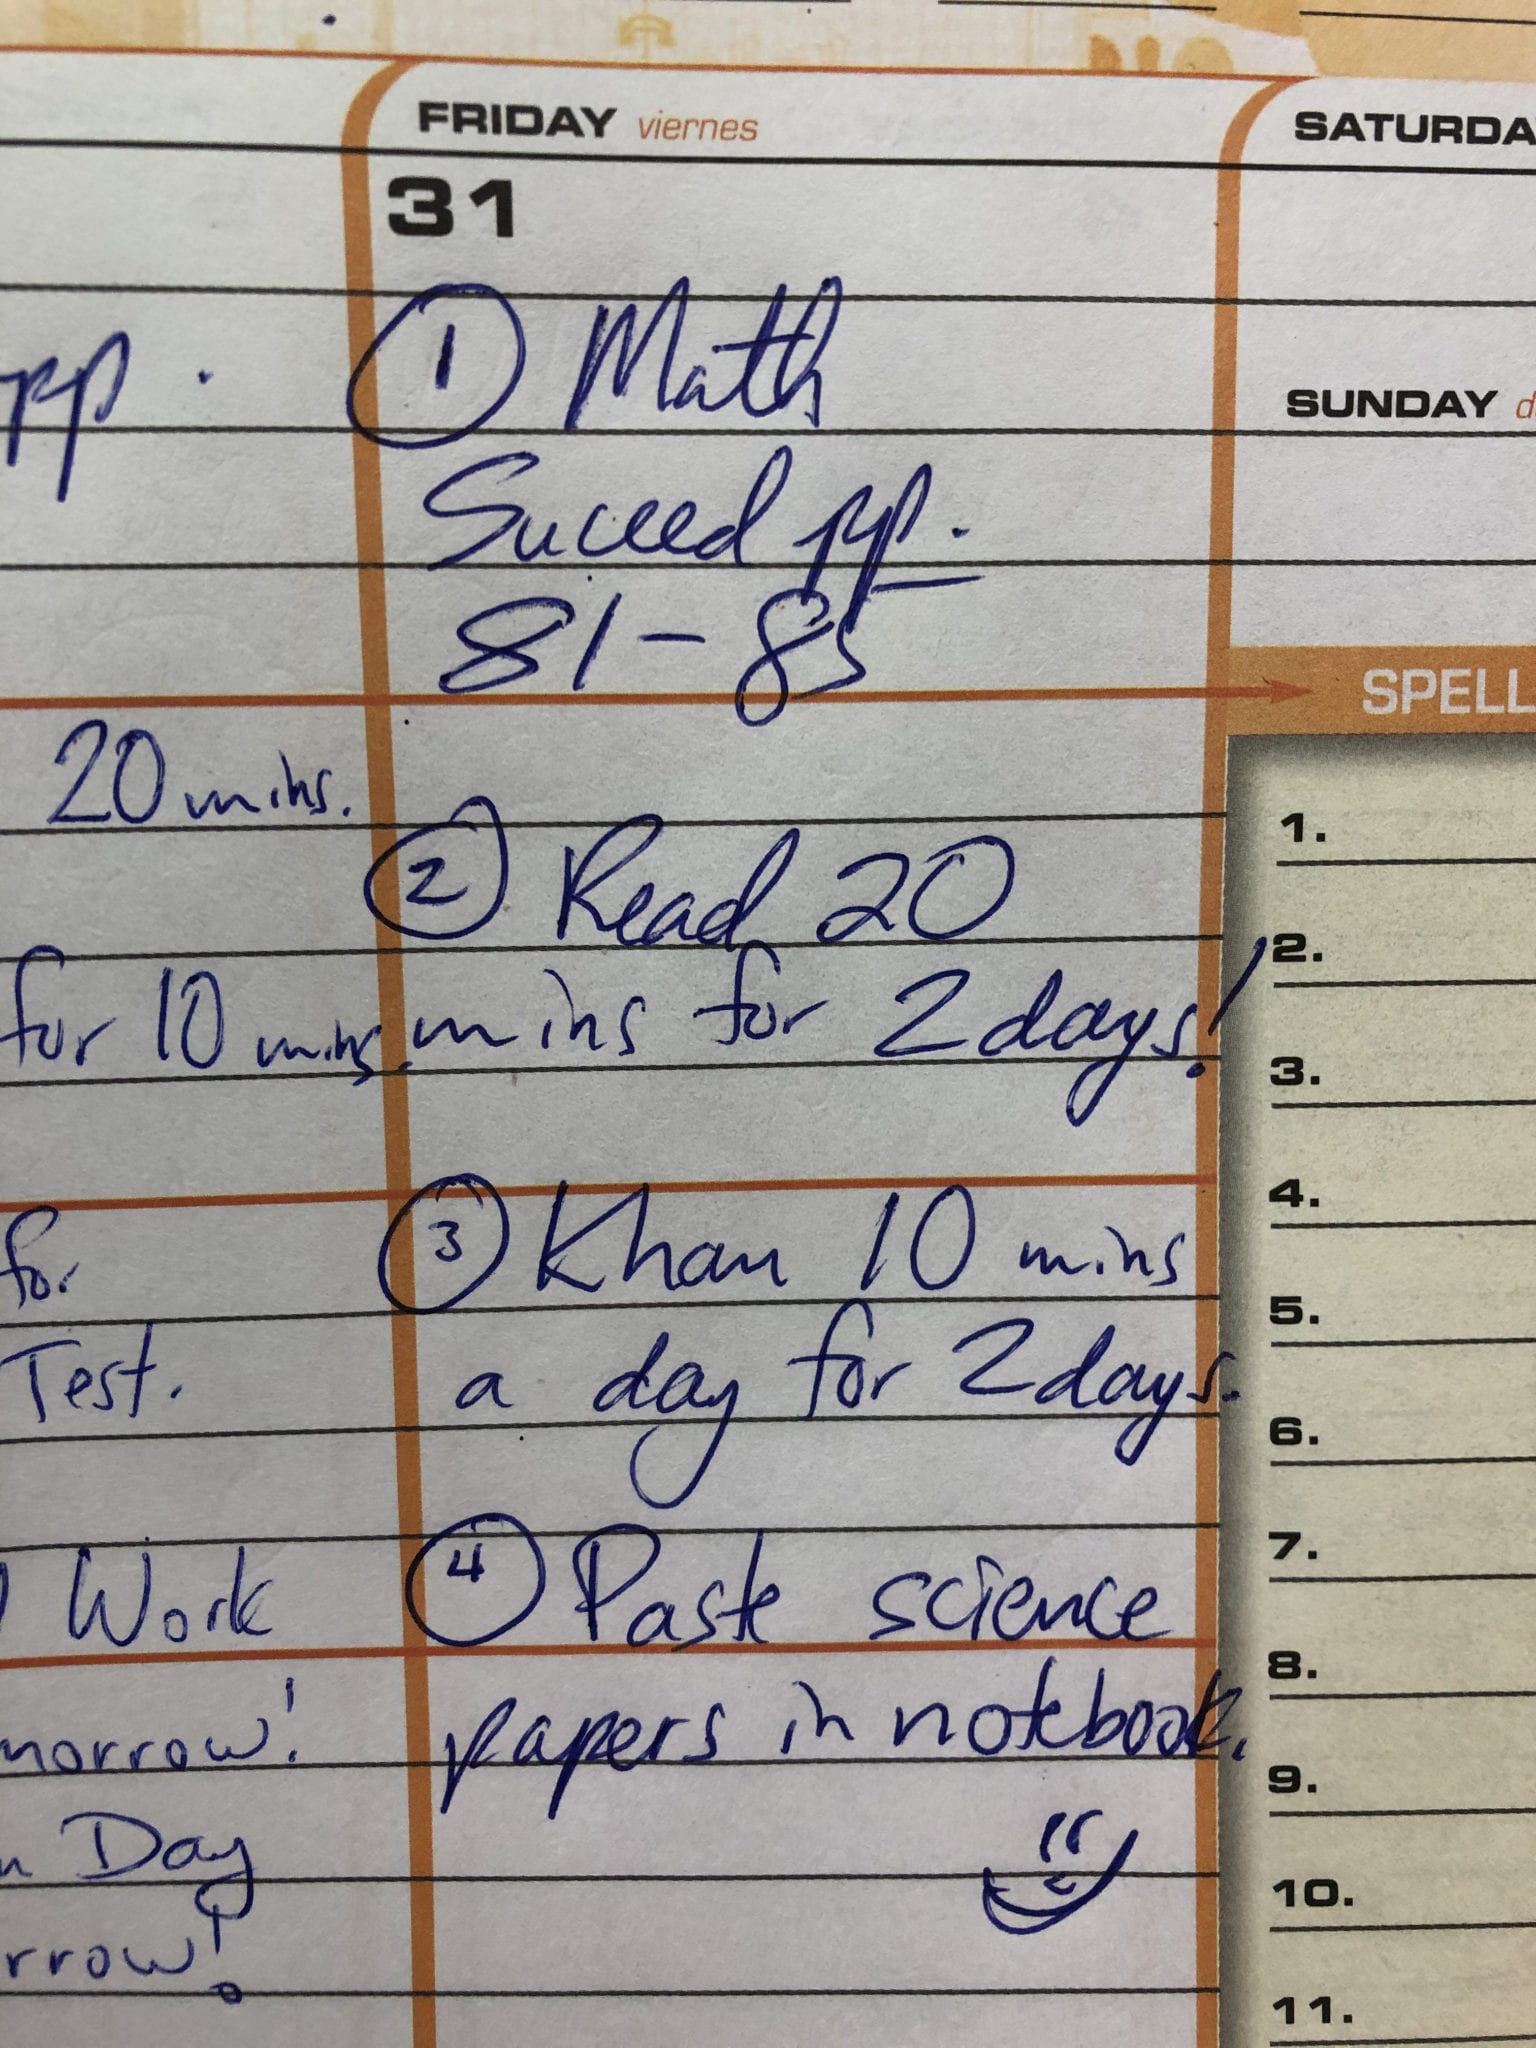 FRIDAY viernes
31
① Math
Succeed pp.
81-85
② Read 20
mins for 2 days!
③ Khan 10 mins
a day for 2 days.
④ Paste science
papers in notebook.
pp.
20 mins.
for 10 mins.
for
Test.
Work
morrow!
Day
rrow!
SATURDA
SUNDAY d
SPELL
1.
2.
3.
4.
5.
6.
7.
8.
9.
10.
11.